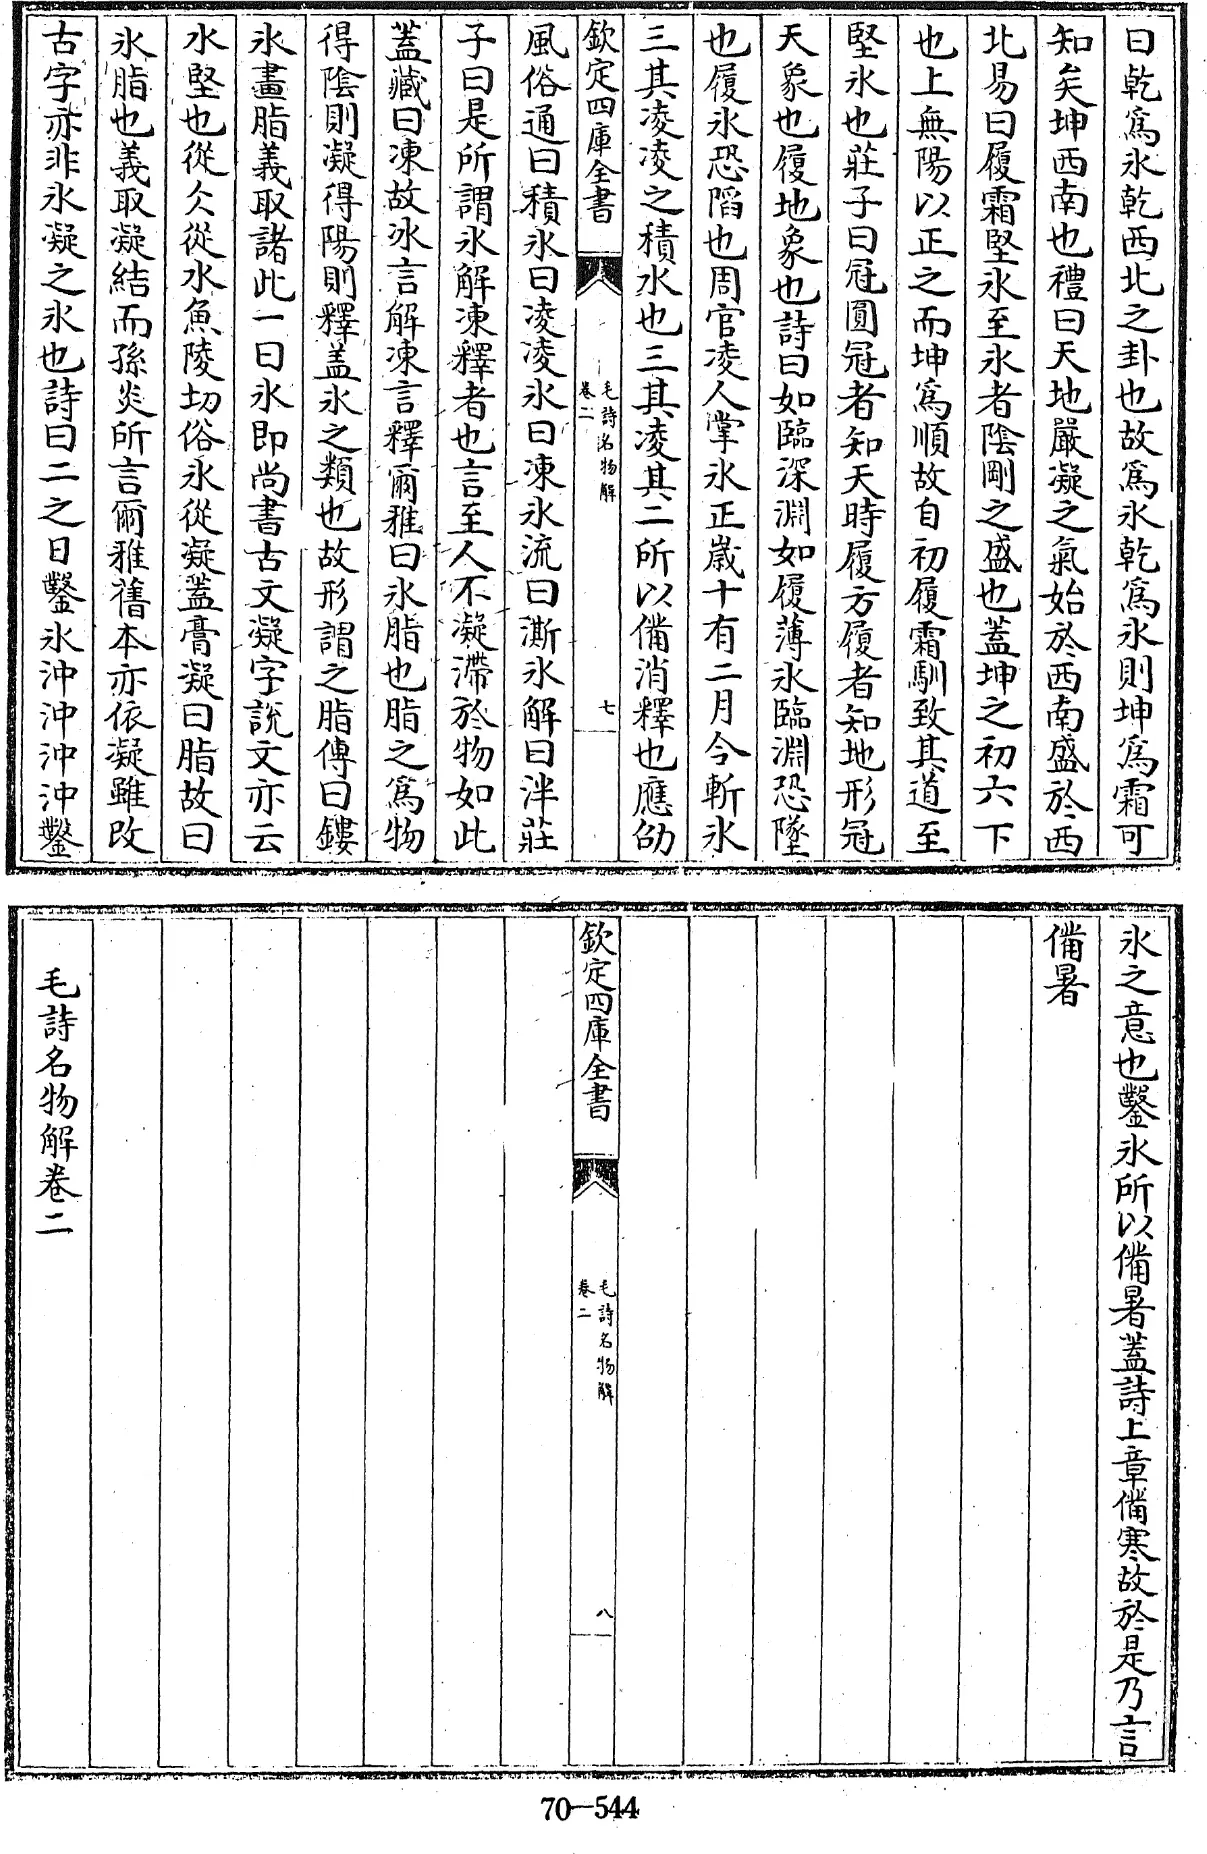 曰乾爲氷乾西北之卦也故爲氷乾爲氷則坤爲霜可
知矣坤西南也禮曰天地嚴凝之氣始於西南盛於西
北易曰履霜堅氷至氷者陰剛之盛也蓋坤之初六下
也上無陽以正之而坤爲順故自初履霜馴致其道至
堅氷也莊子曰冠圓冠者知天時履方履者知地形冠
天象也履地象也詩曰如臨深淵如履薄氷臨淵恐墜
也履氷恐蹈也周官凌人掌氷正歲十有二月令斬氷
三其凌凌之積氷也三其凌其二所以備消釋也應劭
欽定四庫全書
毛詩名物解
卷二
七
風俗通曰積氷曰凌凌氷曰凍氷流曰澌氷解曰泮莊
子曰是所謂氷解凍釋者也言至人不凝滯於物如此
蓋藏曰凍故氷言解凍言釋爾雅曰氷脂也脂之爲物
得陰則凝得陽則釋蓋氷之類也故形謂之脂傳曰鏤
氷畫脂義取諸此一曰氷即尚書古文凝字說文亦云
水堅也從仌從水魚陵切俗氷從凝蓋膏凝曰脂故曰
氷脂也義取凝結而孫炎所言爾雅舊本亦依凝雖改
古字亦非氷凝之氷也詩曰二之日鑿氷沖沖沖沖鑿
氷之意也鑿氷所以備暑蓋詩上章備寒故於是乃言
備暑
欽定四庫全書
毛詩名物解
卷二
八
毛詩名物解卷二
70-544